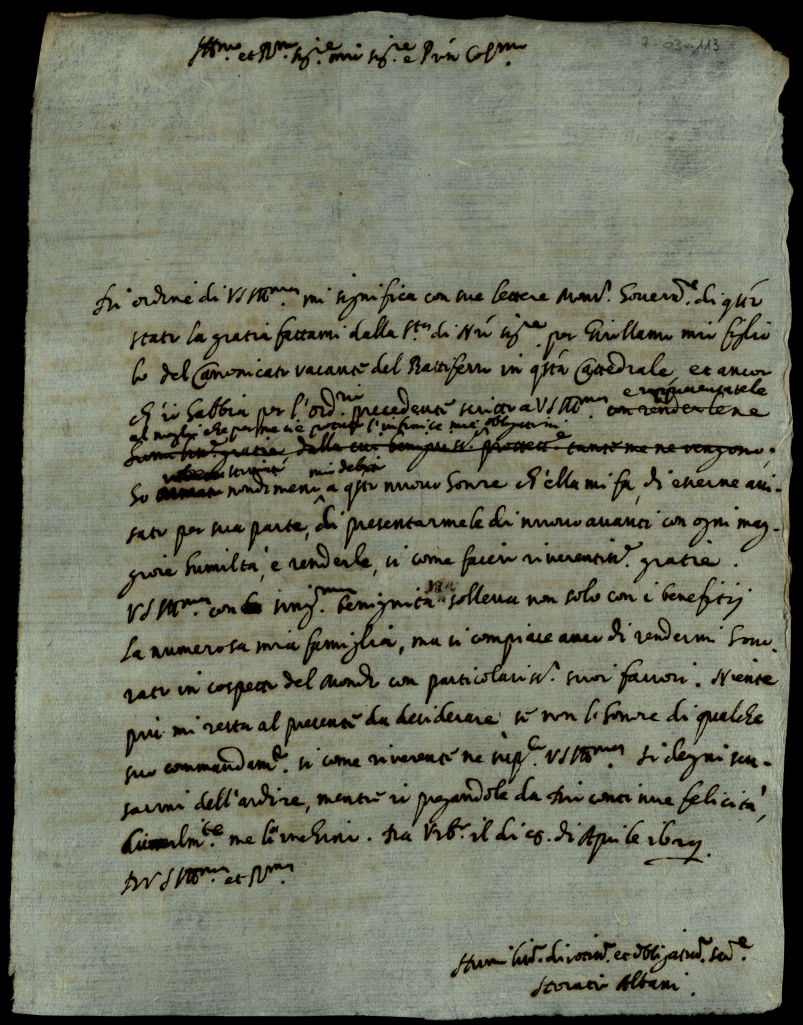 7-03-113
Ill.mo et R.mo sig.re mio sig.re e P.rōn Col.mo
Di ordine di VS Ill.ma mi significa con sue lettere Mons.r Govern.re di q.sto
stato la gratia fattami dalla S.tà di N.ro sig.re per Girollamo mio figlio
lo del Canonicato vacante del Rattiferro in q.sta Cattedrale, et ancor
ch'io habbia per l'ord.rio precedente scritto a VS Ill.ma con renderlene e rappresentatele
al meglio che per me si è potuto l'infinite mie obligationi
humiliss.e gratie, dalla cui benigniss.a protett.e tante me ne vengono;
ho nondimeno a q.sto nuovo honore ch'ella mi fa, di esserne avi-
sato per sua parte, di presentarmele di nuovo avanti con ogni mag-
giore humiltà, e renderle, si come faccio riverentiss.e gratie.
VS Ill.ma con la sing.ma benignità sua solleva non solo con i benefitij
la numerosa mia famiglia, ma si compiace anco di rendermi hono-
rato in cospetto del Mondo con particolariss.i suoi favori. Niente
più mi resta al presente da desiderare se non l'honore di qualche
suo commandam.to, si come riverente ne supp.co VS Ill.ma. Si degni scu-
sarmi dell'ardire, mentre io pregandole da Dio continue felicità,
humilm.te me le inchino. Da Urb.o il di 28. di Aprile
Di VS Ill.ma et R.ma
Humiliss.o divotiss.o et obligatiss.o ser.re
Horatio Albani.